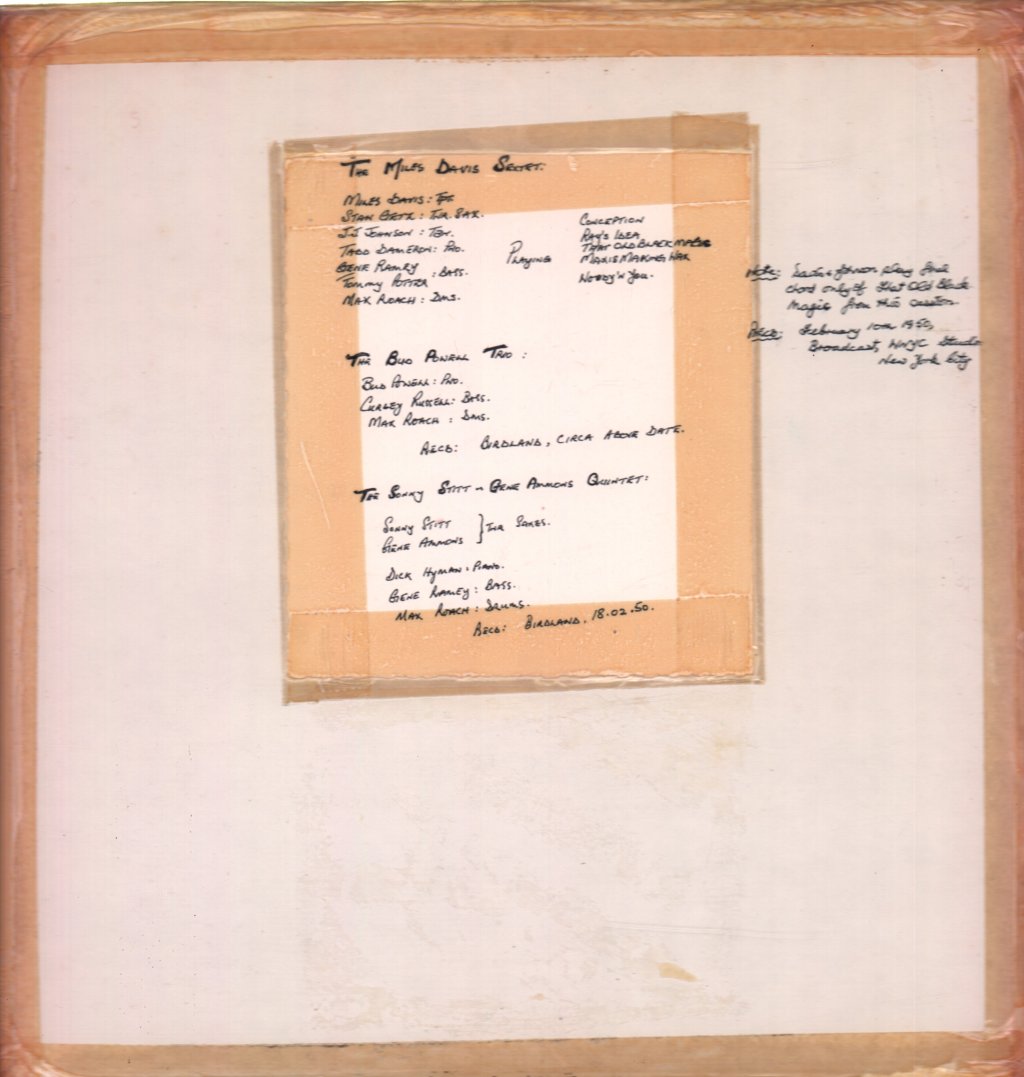 THE MILES DAVIS SEXTET.
MILES DAVIS : TPT.
STAN GETZ : TNR. SAX.
J.J JOHNSON : TBN.
TADD DAMERON : PNO.
GENE RAMEY
TOMMY POTTER : BASS.
MAX ROACH : DMS.
PLAYING
CONCEPTION
RAY'S IDEA
THAT OLD BLACK MAGIC
MAX IS MAKING WAX
WOODY'N YOU.
Note: Davis & Johnson play final
chord only of That Old Black
Magic from this session
Recd: February 10th 1950,
Broadcast, WNYC Studio
New York City
THE BUD POWELL TRIO :
BUD POWELL : PNO.
CURLEY RUSSELL : BASS.
MAX ROACH : DMS.
RECD: BIRDLAND, CIRCA ABOVE DATE.
THE SONNY STITT ~ GENE AMMONS QUINTET :
SONNY STITT
GENE AMMONS } TNR SAXES.
DICK HYMAN : PIANO.
GENE RAMEY : BASS.
MAX ROACH : DRUMS.
RECD: BIRDLAND. 18.02.50.